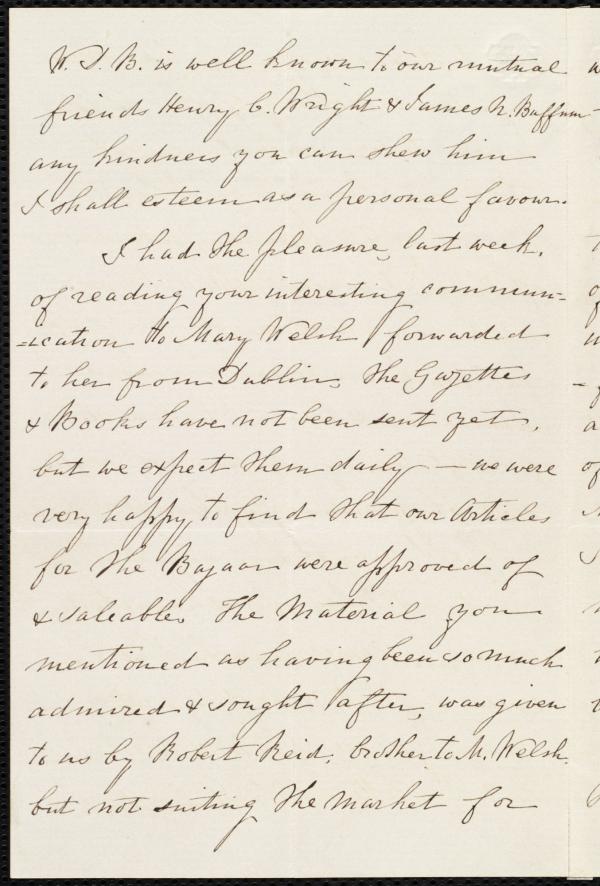 W. D. B. is well known to our mutual
friends Henry C. Wright & James N. Buffum
any kindness you can shew him
I shall esteem as a personal favour.
I had the pleasure, last week,
of reading your interesting commun=
=ication to Mary Welsh forwarded
to her from Dublin, the Gazettes
& Books have not been sent yet,
but we expect them daily — we were
very happy to find that our Articles
for the Bazaar were approved of
& saleable. The Material you
mentioned as having been so much
admired & sought after, was given
to us by Robert Reid, brother to M. Welsh.
but not suiting the market for